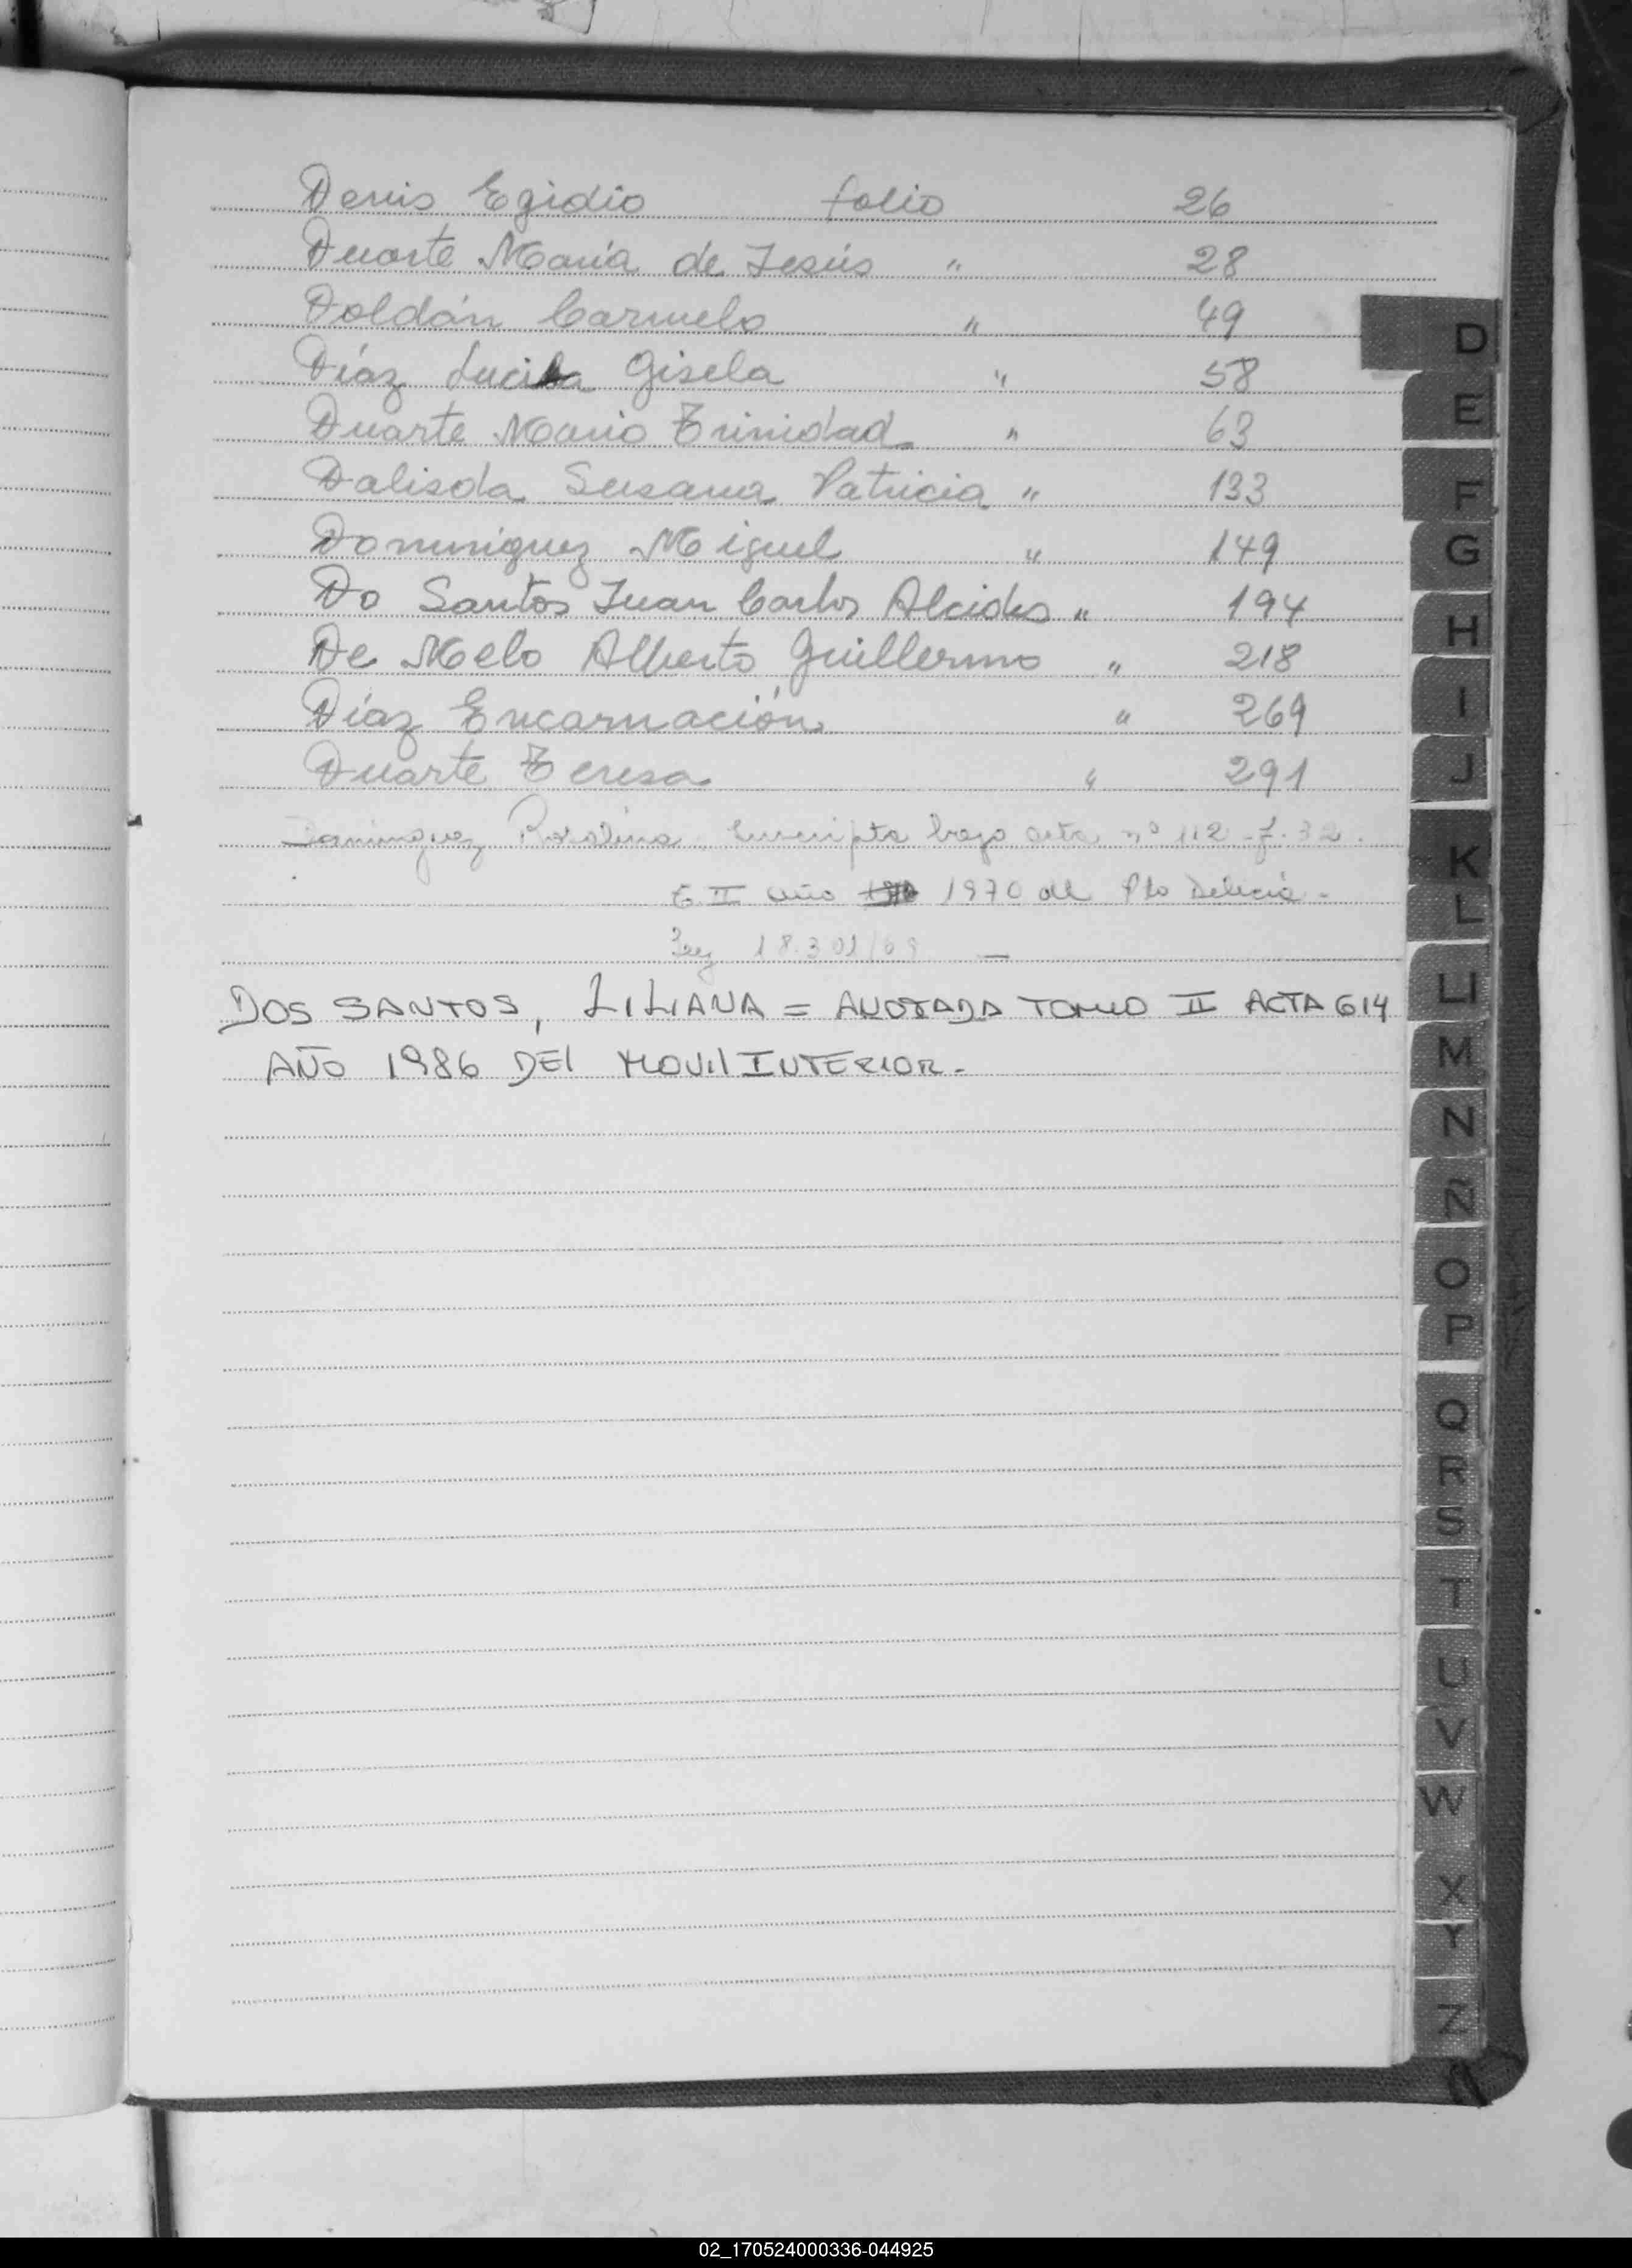 Denis Egidio folio 26
Duarte María de Jesús " 28
Doldán Carmelo " 49
Díaz Lucila Gisela " 58
Duarte Mario Trinidad " 63
Dalisda Susana Patricia " 133
Dominguez Miguel " 149
Do Santos Juan Carlos Alcides " 194
De Melo Alberto Guillermo " 218
Díaz Encarnación " 269
Duarte Teresa " 291
Dominguez Rosalina, Inscripta bajo acta nº 112 - f. 32.
T II año 1970 de Pto Delicia -
Ley 18.301/69 —
DOS SANTOS, LILIANA = ANOTADA TOMO II ACTA 614
AÑO 1986 DEl MOVIl INTERIOR.-
D
E
F
G
H
I
J
K
L
Ll
M
N
Ñ
O
P
Q
R
S
T
U
V
W
X
Y
Z
02_170524000336-044925